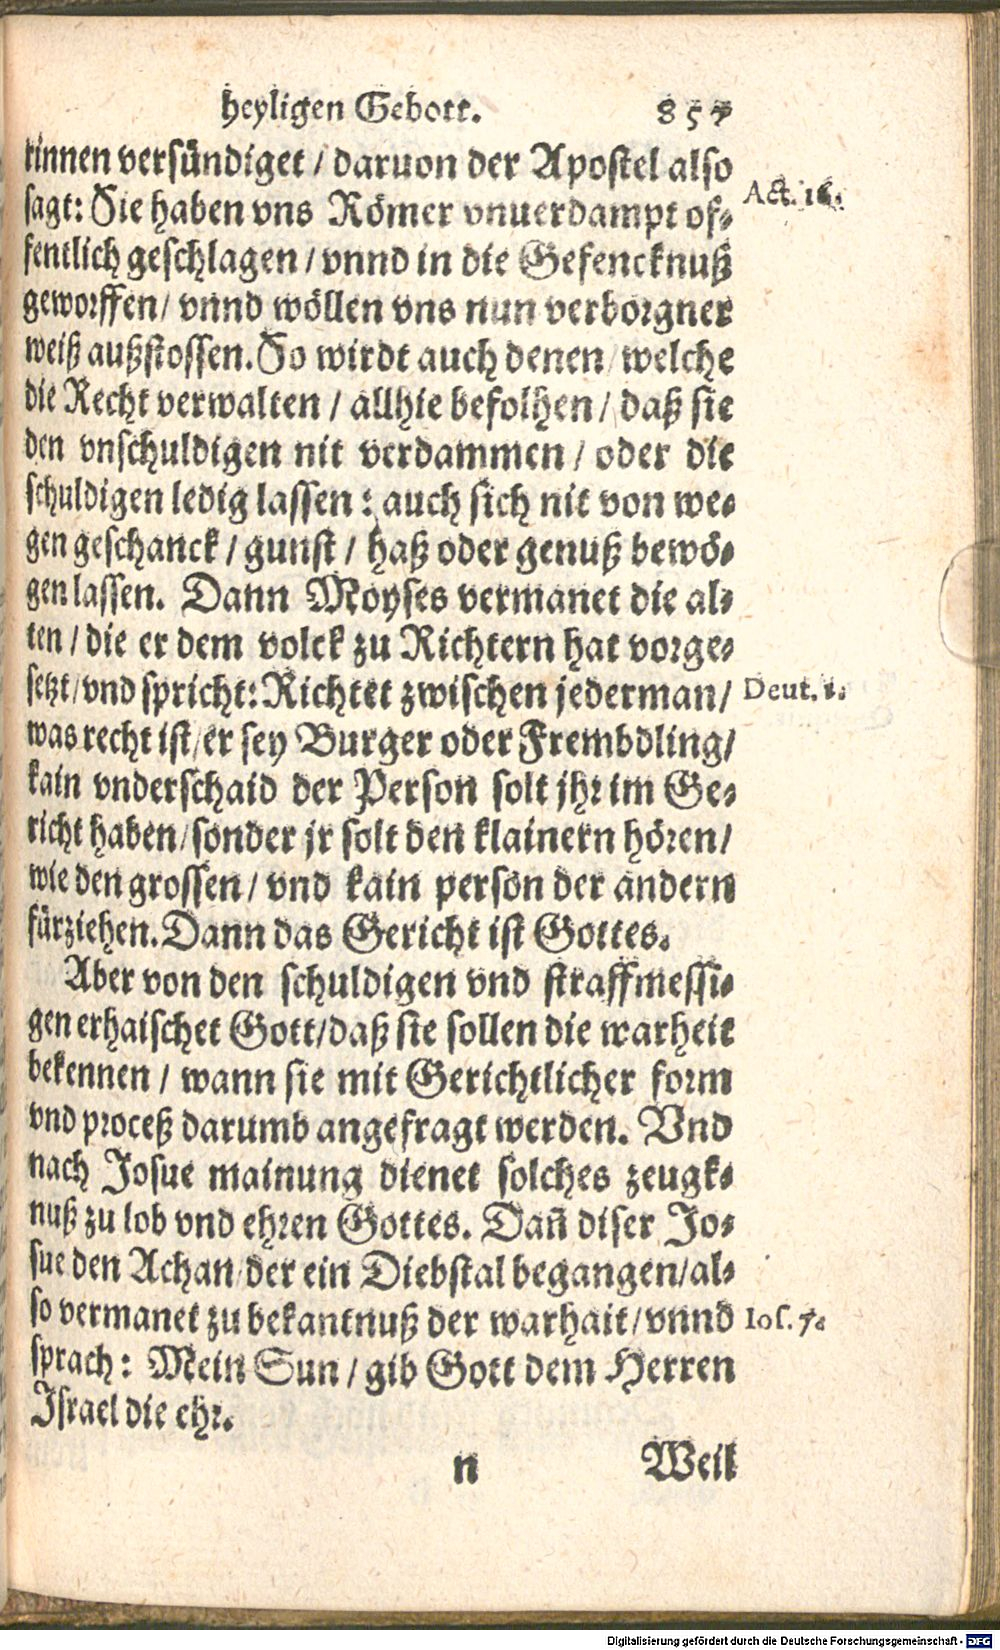 heyligen Gebott. 857
rinnen versündiget / daruon der Apostel also
sagt: Sie haben vns Römer vnuerdampt of- Act. 16.
fentlich geschlagen / vnnd in die Gefencknuß
geworffen / vnnd wöllen vns nun verborgner
weiß außstossen. So wirdt auch denen / welche
die Recht verwalten / allhie befolhen / daß sie
den vnschuldigen nit verdammen / oder die
schuldigen ledig lassen : auch sich nit von we-
gen geschanck / gunst / haß oder genuß bewö-
gen lassen. Dann Moyses vermanet die al-
ten / die er dem volck zu Richtern hat vorge-
setzt / vnd spricht: Richtet zwischen jederman / Deut. 1.
was recht ist / er sey Burger oder Frembdling /
kain vnderschaid der Person solt jhr im Ge-
richt haben / sonder jr solt den klainern hören /
wie den grossen / vnd kain person der andern
fürziehen. Dann das Gericht ist Gottes.
Aber von den schuldigen vnd straffmessi-
gen erhaischet Gott / daß sie sollen die warheit
bekennen / wann sie mit Gerichtlicher form
vnd proceß darumb angefragt werden. Vnd
nach Josue mainung dienet solches zeugk-
nuß zu lob vnd ehren Gottes. Dañ diser Jo-
sue den Achan / der ein Diebstal begangen / al-
so vermanet zu bekantnuß der warhait / vnnd Ios. 7.
sprach : Mein Sun / gib Gott dem Herren
Israel die ehr.
n Weil
Digitalisierung gefördert durch die Deutsche Forschungsgemeinschaft - DFG